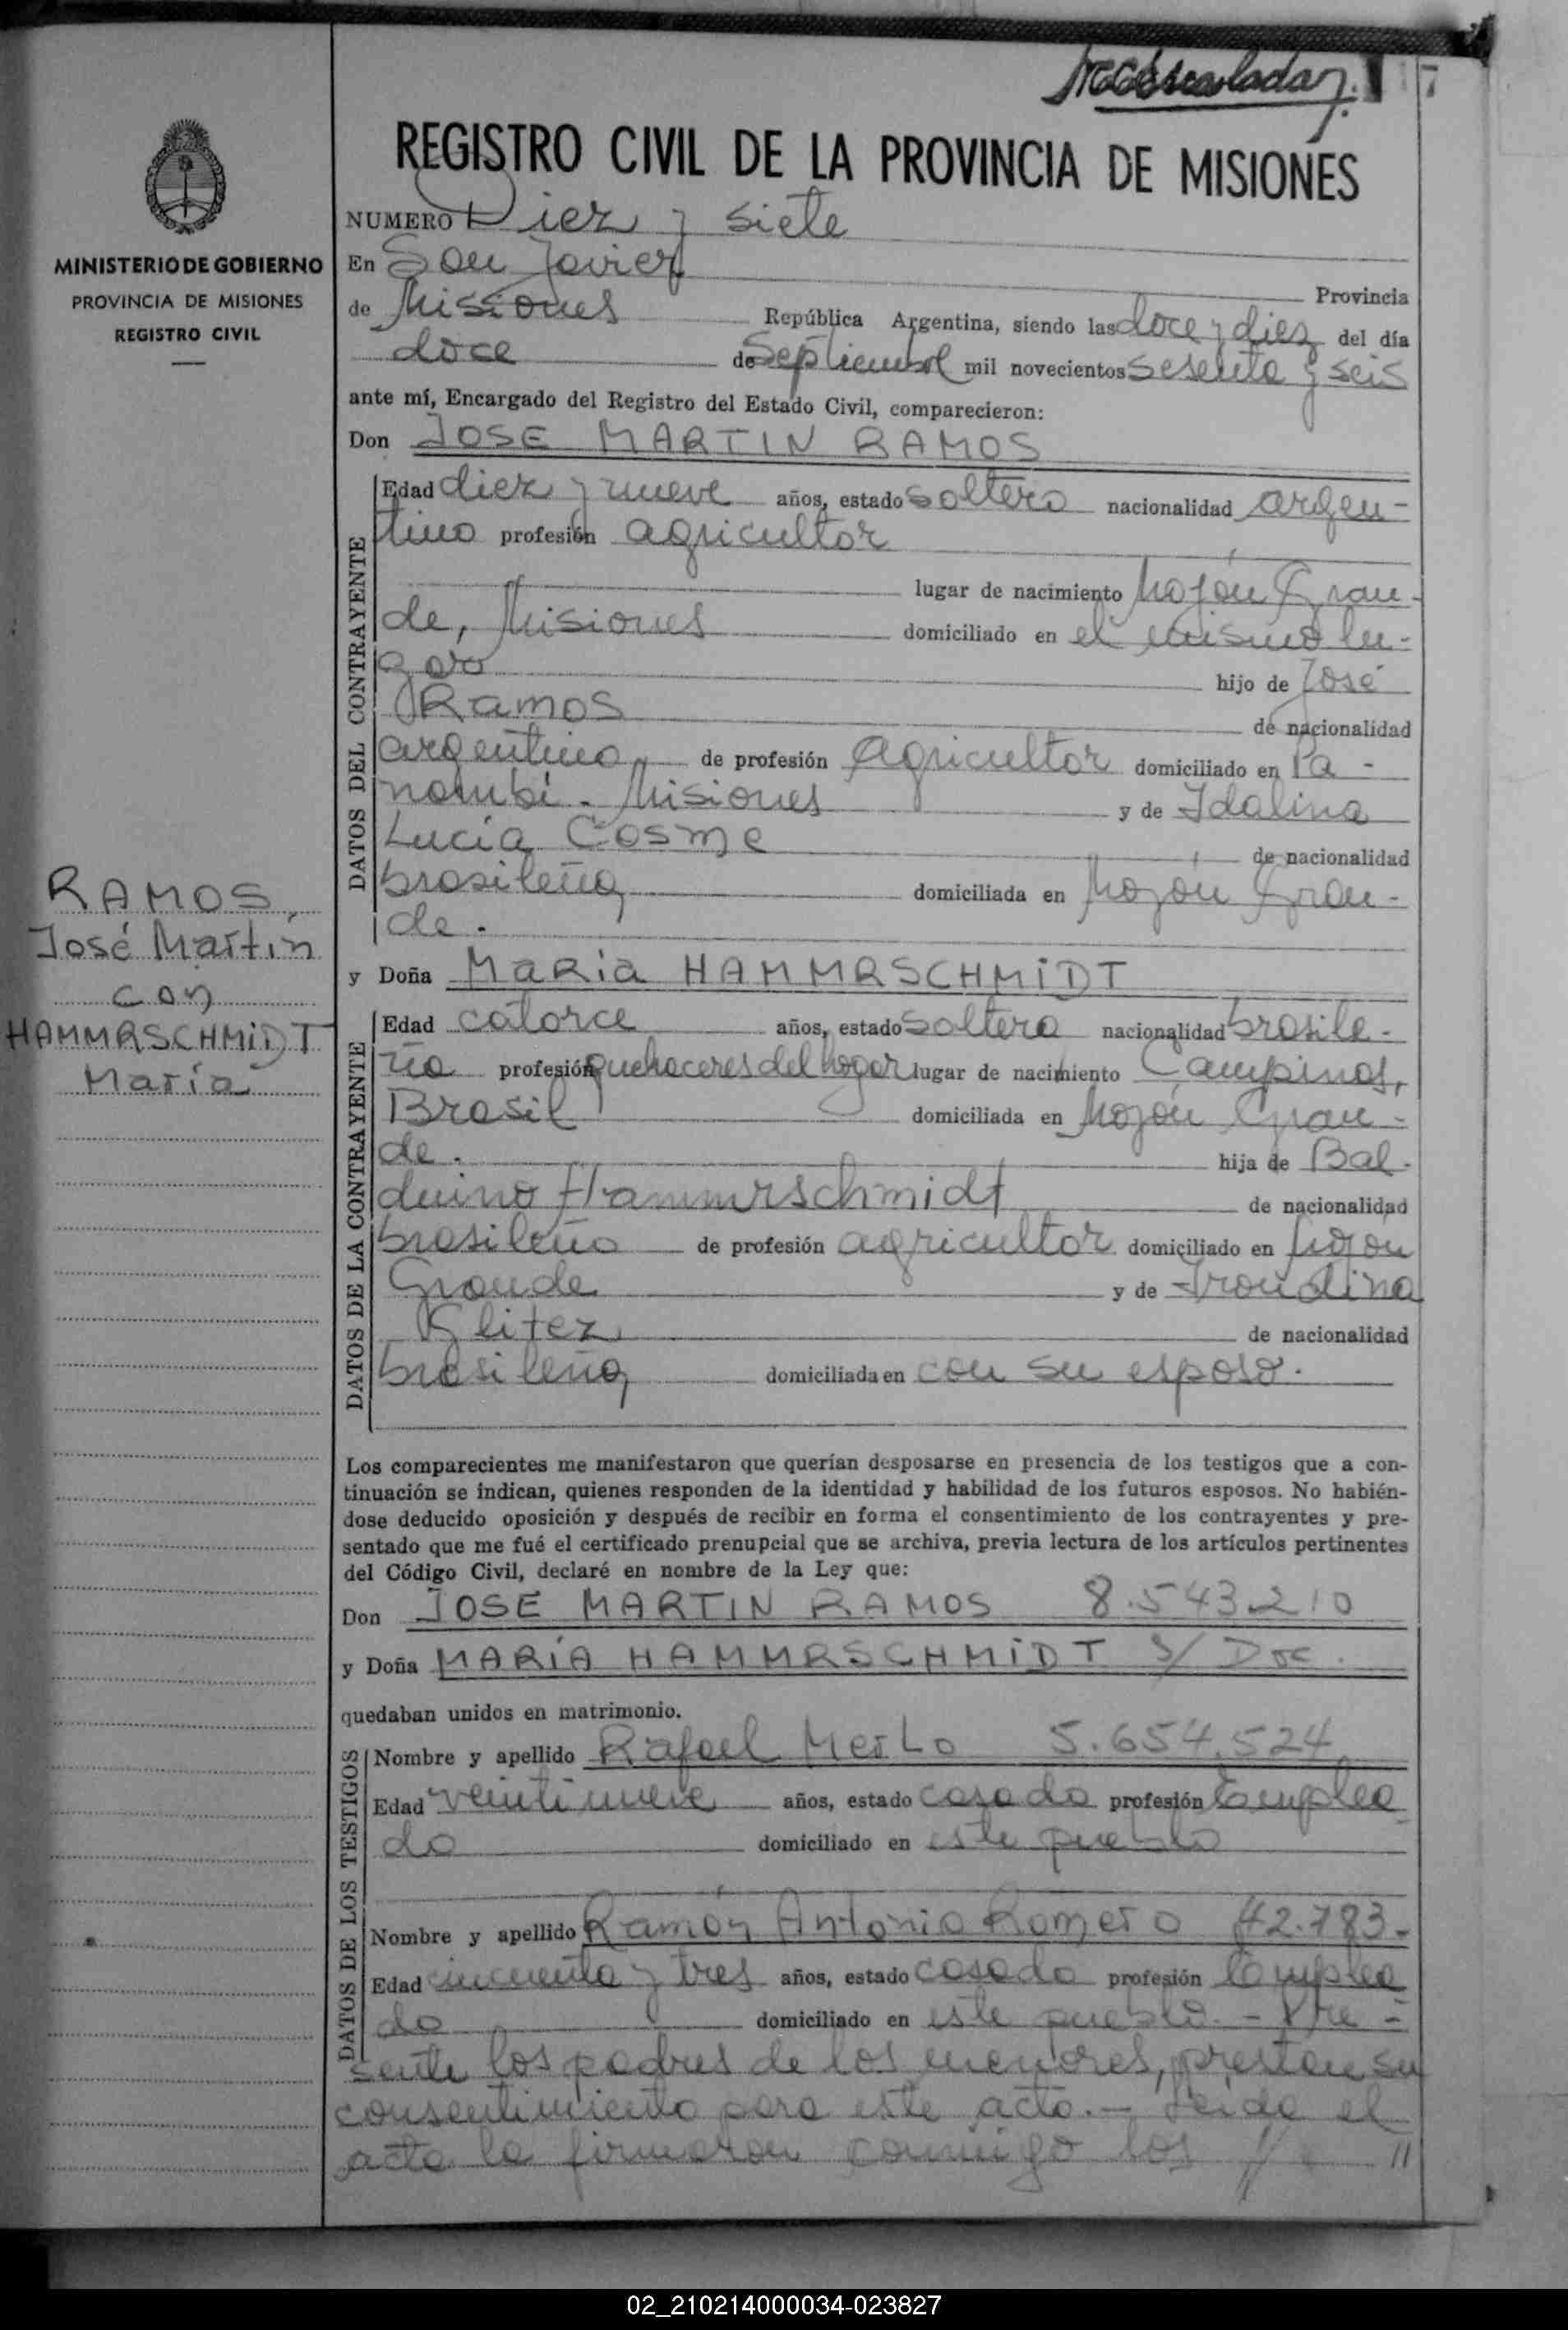 7
REGISTRO CIVIL DE LA PROVINCIA DE MISIONES
NUMERO Diez y siete
MINISTERIO DE GOBIERNO
PROVINCIA DE MISIONES
REGISTRO CIVIL
En San Javier Provincia
de Misiones República Argentina, siendo las doce y diez del día
doce de Septiembre mil novecientos sesenta y seis
ante mí, Encargado del Registro del Estado Civil, comparecieron:
Don JOSE MARTIN RAMOS
DATOS DEL CONTRAYENTE
Edad diez y nueve años, estado soltero nacionalidad argen-
tino profesión agricultor
lugar de nacimiento Mojón Gran-
de, Misiones domiciliado en el mismo lu-
gar hijo de José
Ramos de nacionalidad
argentino de profesión agricultor domiciliado en Pa-
nambí. Misiones y de Idalina
Lucía Cosme de nacionalidad
brasileña domiciliada en Mojón Gran-
de.
RAMOS,
José Martin
con
HAMMRSCHMIDT
María
y Doña MaRia HAMMRSCHMiDT
DATOS DE LA CONTRAYENTE
Edad catorce años, estado soltera nacionalidad brasile-
ña profesión quehaceres del hogar lugar de nacimiento Campinas,
Brasil domiciliada en Mojón Gran-
de. hija de Bal-
duino Hammrschmidt de nacionalidad
brasileño de profesión agricultor domiciliado en Mojon
Grande y de
de nacionalidad
brasileña domiciliada en con su esposo.
Los comparecientes me manifestaron que querían desposarse en presencia de los testigos que a con-
tinuación se indican, quienes responden de la identidad y habilidad de los futuros esposos. No habién-
dose deducido oposición y después de recibir en forma el consentimiento de los contrayentes y pre-
sentado que me fué el certificado prenupcial que se archiva, previa lectura de los artículos pertinentes
del Código Civil, declaré en nombre de la Ley que:
Don JOSE MARTIN RAMOS 8.543.210
y Doña MARÍA HAMMRSCHMiDT S/ Doc.
quedaban unidos en matrimonio.
DATOS DE LOS TESTIGOS
Nombre y apellido Rafael Merlo 5.654.524
Edad veintinueve años, estado casado profesión Emplea
do domiciliado en este pueblo
Nombre y apellido Ramón Antonio Romero 42.783-
Edad cincuenta y tres años, estado casado profesión Emplea
do domiciliado en este pueblo. - Pre-
sente los padres de los menores, prestan su
consentimiento para este acto.- Leída el
acta la firmaron conmigo los //
02_210214000034-023827